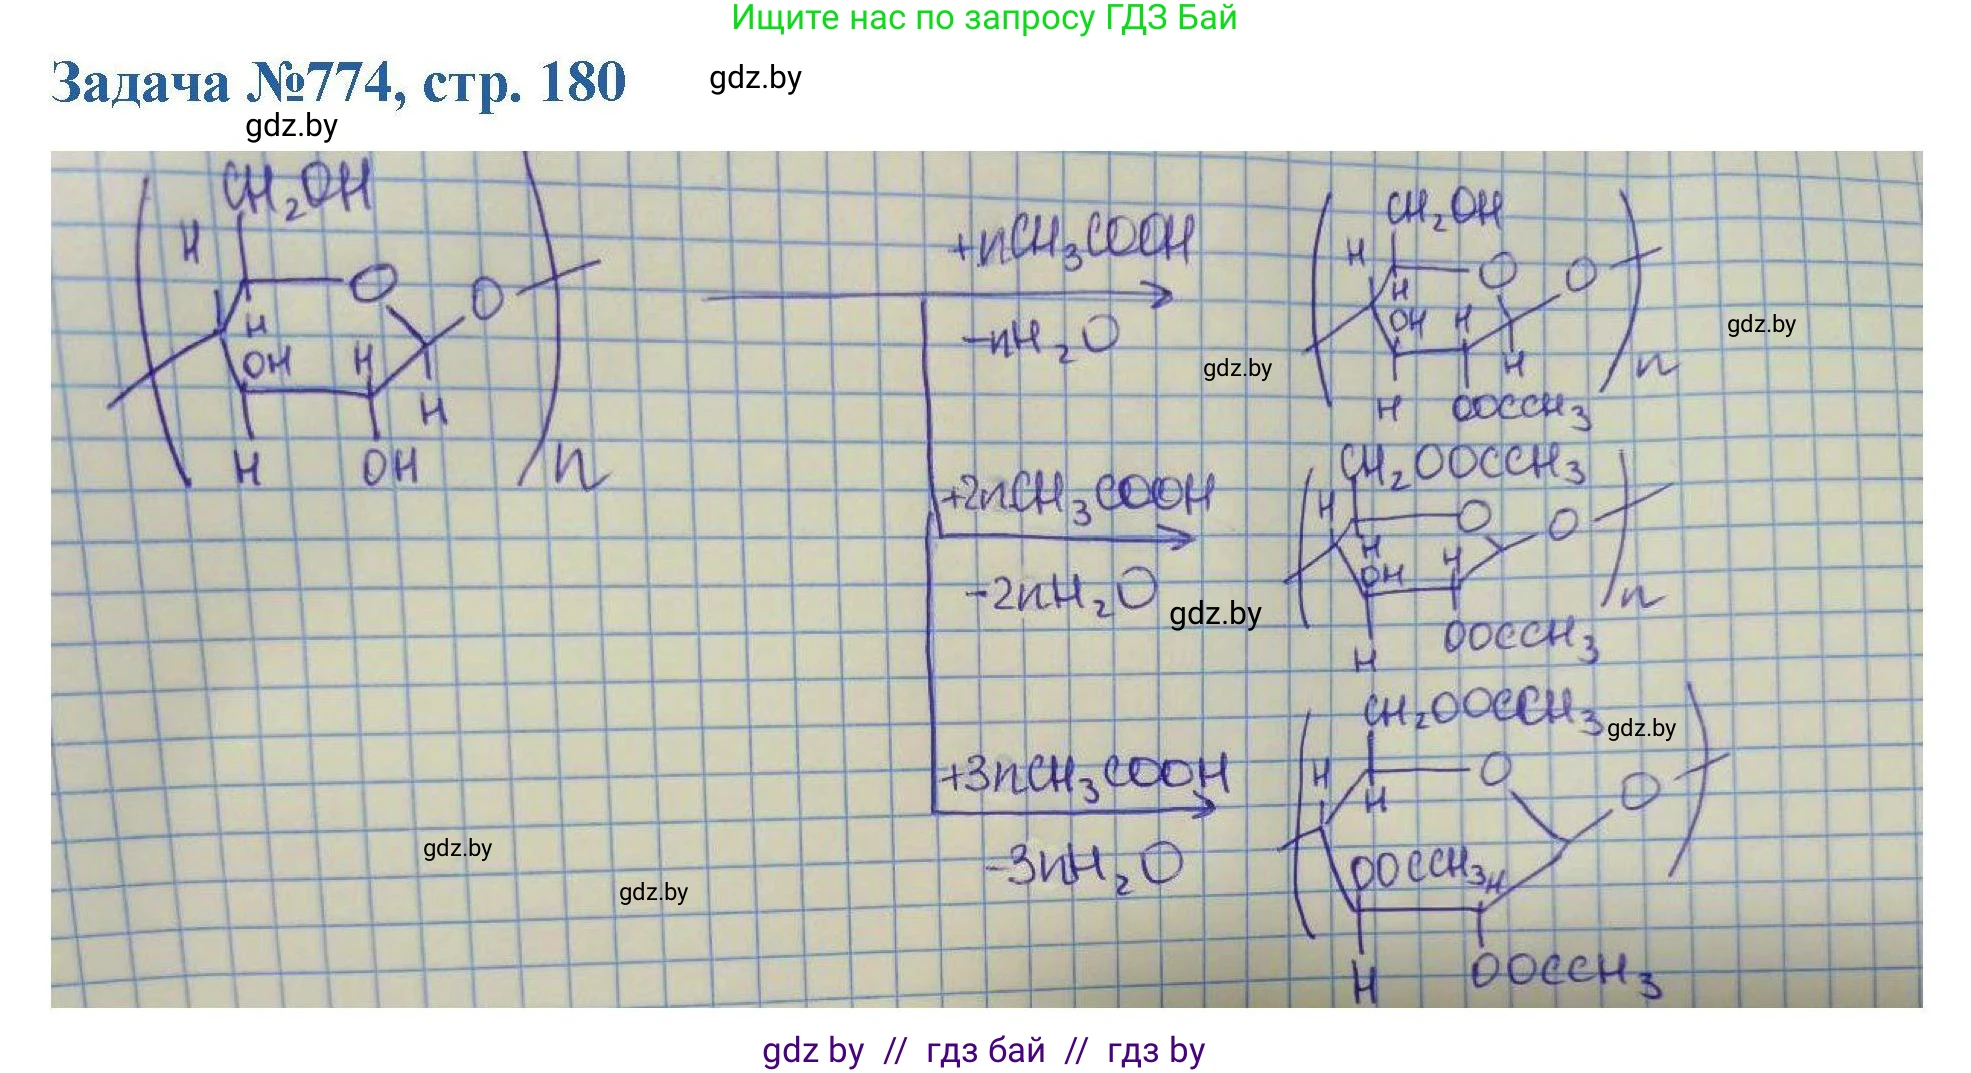 Ищите нас по запросу ГДЗ Бай
Задача №774, стр. 180
gdz.by
gdz.by
CH₂OH
H
O
O
H
OH
H
H
H
OH
n
+nCH₃COOH
-nH₂O
gdz.by
CH₂OH
H
O
O
H
OH
H
H
H
OOCCH₃
n
gdz.by
+2nCH₃COOH
-2nH₂O
gdz.by
CH₂OOCCH₃
H
O
O
H
OH
H
H
OOCCH₃
n
+3nCH₃COOH
-3nH₂O
CH₂OOCCH₃
gdz.by
H
O
O
H
OOCCH₃
H
H
OOCCH₃
gdz.by
gdz.by
gdz by // гдз бай // гдз by